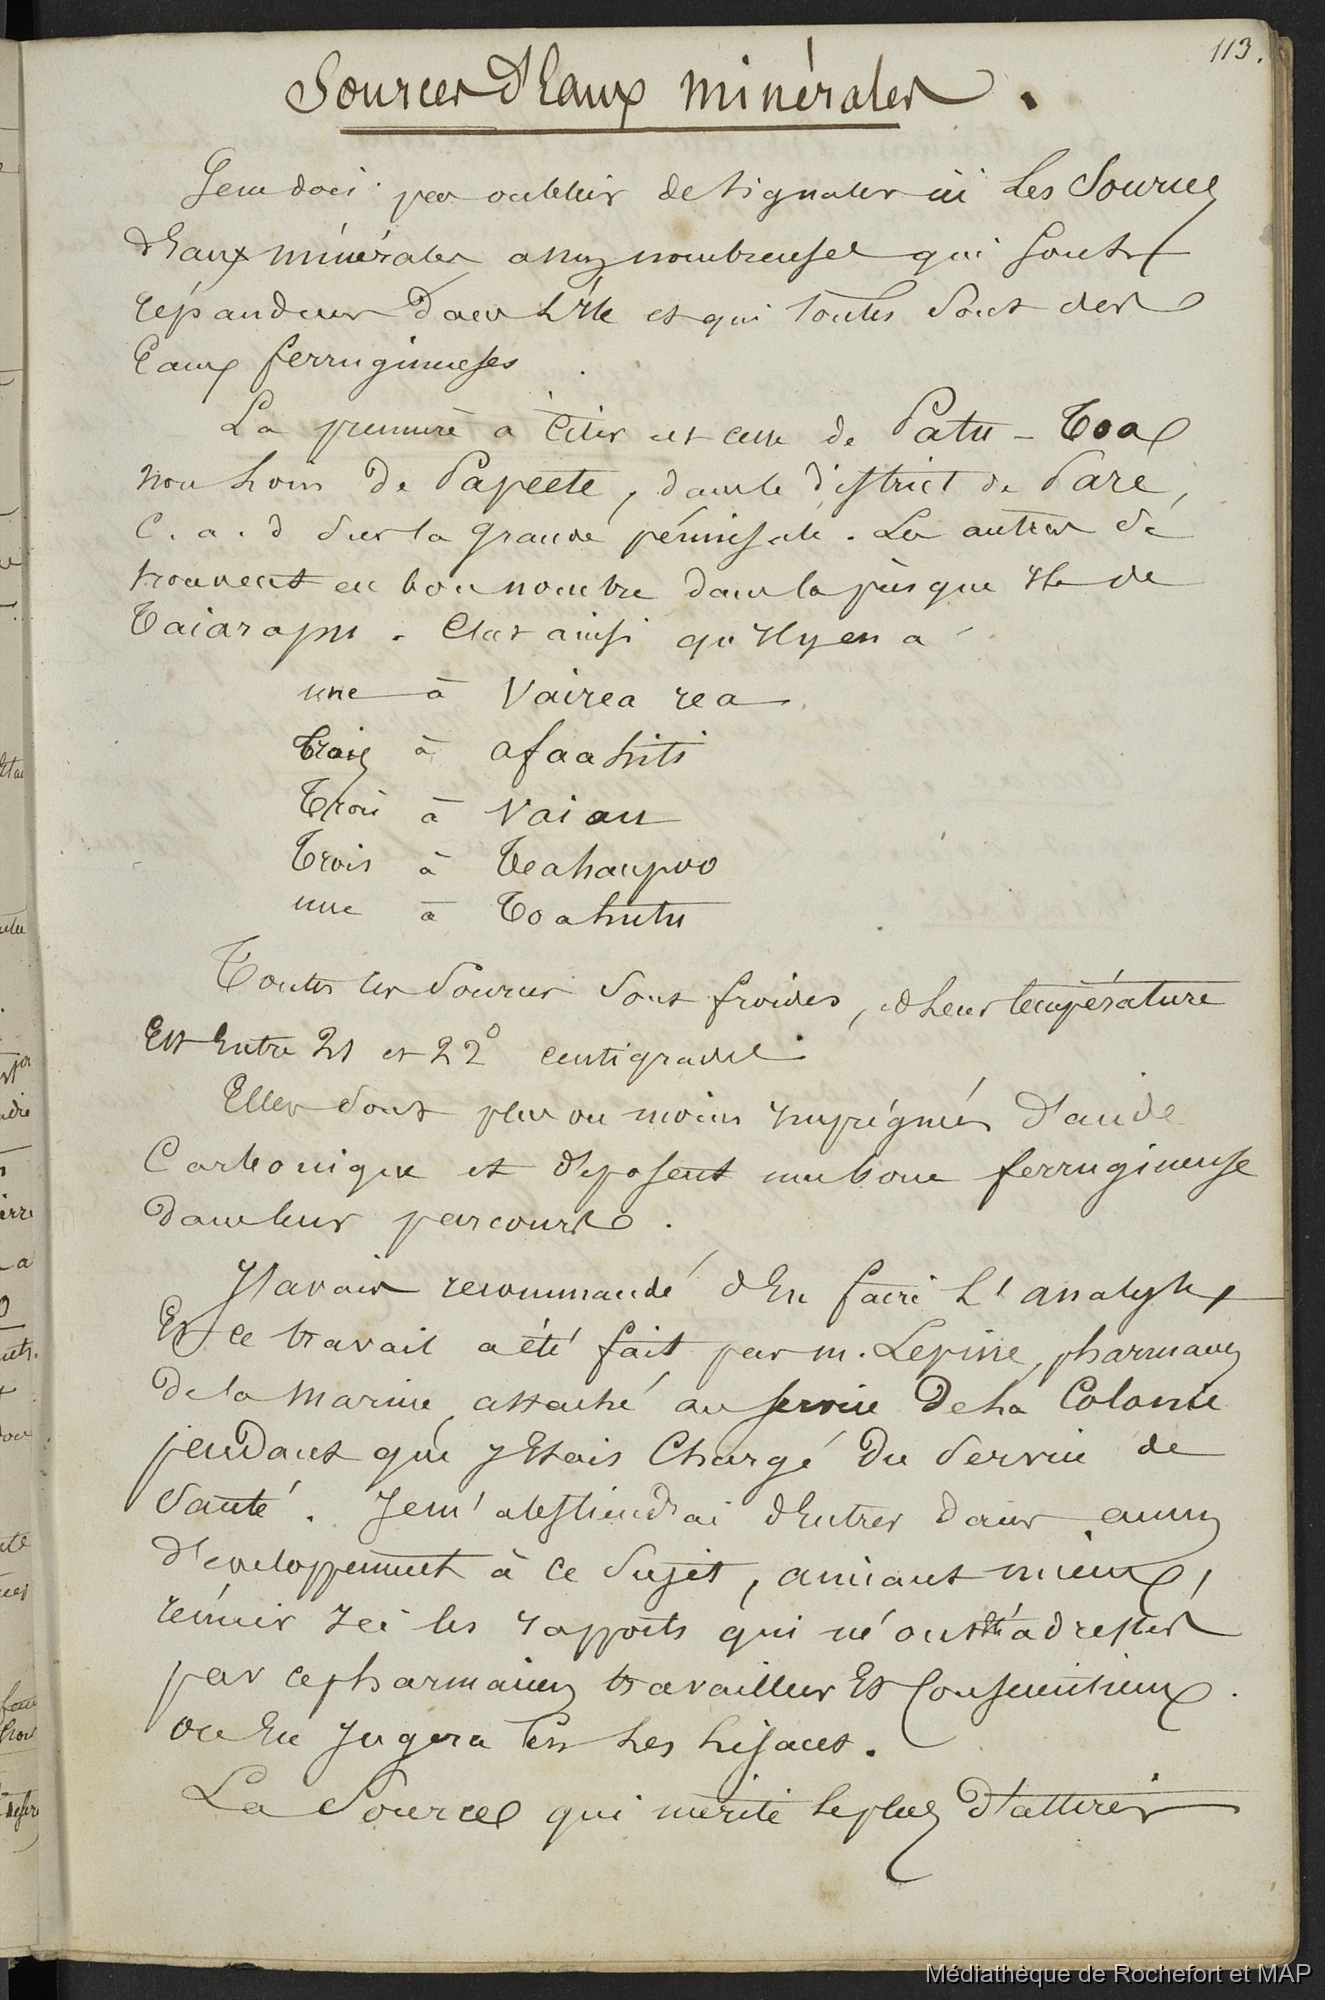 113.
Sources d'Eaux minérales.
Je ne dois pas oublier de signaler ici les Sources
d'Eaux minérales assez nombreuses qui sont
répandues dans l'Ile et qui toutes sont des
Eaux ferrugineuses
La première à Citer est celle de Patu-Toa
non loin de Papeete, dans le district de Pare,
C. a. d sur la grande péninsule. Les autres se
trouvent en bon nombre dans la presque Ile de
Taiarapu. C'est ainsi qu'Il y en a
une à Vairea rea
Trois à afaahiti
Trois à Vaiau
Trois à Teahaupoo
une à Toahutu
Toutes les Sources sont froides, et leur température
Est Entre 21 et 22° centigrades
Elles sont plus ou moins Imprégnées d'acide
Carbonique et déposent une boue ferrugineuse
dans leur parcours.
J'avais recommandé d'En faire l'analyse,
Et ce travail a été fait par m. Lepine, pharmacien
de la Marine attaché au service de la Colonie
pendant que J'Etais Chargé du Service de
Santé. Je m'abstiendrai d'Entrer dans aucun
développement à ce Sujet, aimant mieux,
réunir Ici les rapports qui m'ont été adressés
par ce pharmacien travailleur Et Consciencieux.
on En Jugera En les lisant.
La Source qui mérite le plus d'attirer
Médiathèque de Rochefort et MAP